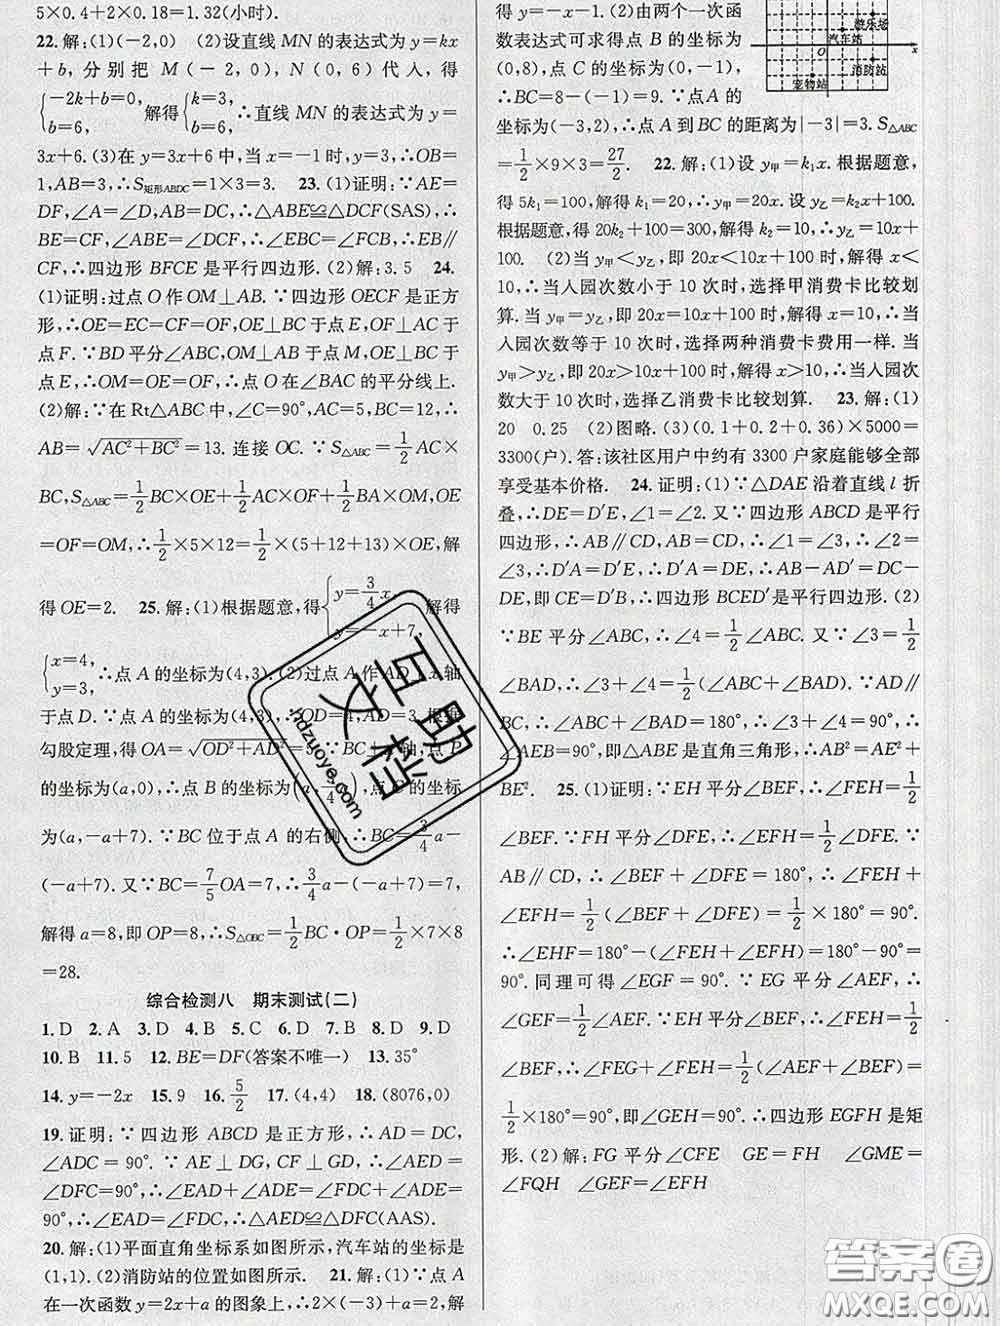 5×0.4+2×0.18=1.32(小时).
22.解:(1)(-2,0) (2)设直线 MN 的表达式为 y=kx
+b,分别把 M(-2,0),N(0,6)代入,得
{-2k+b=0, b=6, 解得{k=3, b=6, ∴直线 MN 的表达式为 y=
3x+6.(3)在 y=3x+6 中,当 x=-1 时,y=3,∴OB=
1,AB=3,∴S矩形ABDC=1×3=3. 23.(1)证明:∵AE=
DF,∠A=∠D,AB=DC,∴△ABE≌△DCF(SAS),∴
BE=CF,∠ABE=∠DCF,∴∠EBC=∠FCB,∴EB∥
CF,∴四边形 BFCE 是平行四边形.(2)解:3.5 24.
(1)证明:过点 O 作 OM⊥AB.∵四边形 OECF 是正方
形,∴OE=EC=CF=OF,OE⊥BC 于点 E,OF⊥AC 于
点 F.∵BD 平分∠ABC,OM⊥AB 于点 M,OE⊥BC 于
点 E,∴OM=OE=OF,∴点 O 在∠BAC 的平分线上.
(2)解:∵在 Rt△ABC 中,∠C=90°,AC=5,BC=12,∴
AB=√(AC²+BC²)=13.连接 OC.∵S△ABC=1/2 AC×
BC,S△ABC=1/2 BC×OE+1/2 AC×OF+1/2 BA×OM,OE
=OF=OM,∴1/2×5×12=1/2×(5+12+13)×OE,解
得 OE=2. 25.解:(1)根据题意,得{y=3/4 x, y=-x+7, 解得
{x=4, y=3, ∴点 A 的坐标为(4,3).(2)过点 A 作 AD x 轴
于点 D.∵点 A 的坐标为(4,3),∴OD=4,AD=3,根据
勾股定理,得 OA=√(OD²+AD²)=5.∵BC 轴,点 P
的坐标为(a,0),∴点 B 的坐标为(a,3/4 a),点 C 的坐标
为(a,-a+7).∵BC 位于点 A 的右侧,∴BC=3/4 a-
(-a+7).又∵BC=7/5 OA=7,∴3/4 a-(-a+7)=7,
解得 a=8,即 OP=8,∴S△OBC=1/2 BC·OP=1/2×7×8
=28.
综合检测八 期末测试(二)
1.D 2.A 3.D 4.B 5.C 6.D 7.B 8.D 9.D
10.B 11.5 12.BE=DF(答案不唯一) 13.35°
14.y=-2x 15.9 16.5/2 17.(4,4) 18.(8076,0)
19.证明:∵四边形 ABCD 是正方形,∴AD=DC,
∠ADC=90°.∵AE⊥DG,CF∥AE,∴∠AED=
∠DFC=90°,∴∠EAD+∠ADE=∠FDC+∠ADE=
90°,∴∠EAD=∠FDC,∴△AED≌△DFC(AAS).
20.解:(1)平面直角坐标系如图所示,汽车站的坐标是
(1,1).(2)消防站的位置如图所示. 21.解:(1)∵点 A
在一次函数 y=2x+a 的图象上,∴2×(-3)+a=2,解
得 y=-x-1.(2)由两个一次函
数表达式可求得点 B 的坐标为
(0,8),点 C 的坐标为(0,-1),
∴BC=8-(-1)=9.∵点 A 的
坐标为(-3,2),∴点 A 到 BC 的距离为|-3|=3.S△ABC
=1/2×9×3=27/2. 22.解:(1)设 y甲=k₁x.根据题意,
得 5k₁=100,解得 k₁=20,∴y甲=20x.设 y乙=k₂x+100.
根据题意,得 20k₂+100=300,解得 k₂=10,∴y乙=10x+
100.(2)当 y甲<y乙,即 20x<10x+100 时,解得 x<10,
∴当入园次数小于 10 次时,选择甲消费卡比较划
算.当 y甲=y乙,即 20x=10x+100 时,解得 x=10,∴当
入园次数等于 10 次时,选择两种消费卡费用一样.当
y甲>y乙,即 20x>10x+100 时,解得 x>10,∴当入园次
数大于 10 次时,选择乙消费卡比较划算. 23.解:(1)
20 0.25 (2)图略.(3)(0.1+0.2+0.36)×5000=
3300(户).答:该社区用户中约有 3300 户家庭能够全部
享受基本价格. 24.证明:(1)∵△DAE 沿着直线 l 折
叠,∴DE=D'E,∠1=∠2.又∵四边形 ABCD 是平行
四边形,∴AB∥CD,AB=DC,∴∠1=∠3,∴∠2=
∠3,∴D'A=D'E,∴D'A=DE,∴AB-AD'=DC-
DE,即 CE=D'B,∴四边形 BCED'是平行四边形.(2)
∵BE 平分∠ABC,∴∠4=1/2∠ABC.又∵∠3=1/2
∠BAD,∴∠3+∠4=1/2(∠ABC+∠BAD).∵AD∥
BC,∴∠ABC+∠BAD=180°,∴∠3+∠4=90°,∴
∠AEB=90°,即△ABE 是直角三角形,∴AB²=AE²+
BE². 25.(1)证明:∵EH 平分∠BEF,∴∠FEH=1/2
∠BEF.∵FH 平分∠DFE,∴∠EFH=1/2∠DFE.∵
AB∥CD,∴∠BEF+∠DFE=180°,∴∠FEH+
∠EFH=1/2(∠BEF+∠DFE)=1/2×180°=90°.
∴∠EHF=180°-(∠FEH+∠EFH)=180°-90°=
90°.同理可得∠EGF=90°.∵EG 平分∠AEF,∴
∠GEF=1/2∠AEF.∵EH 平分∠BEF,∴∠FEH=1/2
∠BEF.∴∠GEF+∠FEH=1/2(∠AEF+∠BEF)=
1/2×180°=90°,即∠GEH=90°,∴四边形 EGFH 是矩
形.(2)解:FG 平分∠CFE GE=FH ∠GME=
∠FQH ∠GEF=∠EFH
游乐场
汽车站
消防站
宠物站
O
x
互助文档
hdzuoye.com
答案圈
MXQE.COM